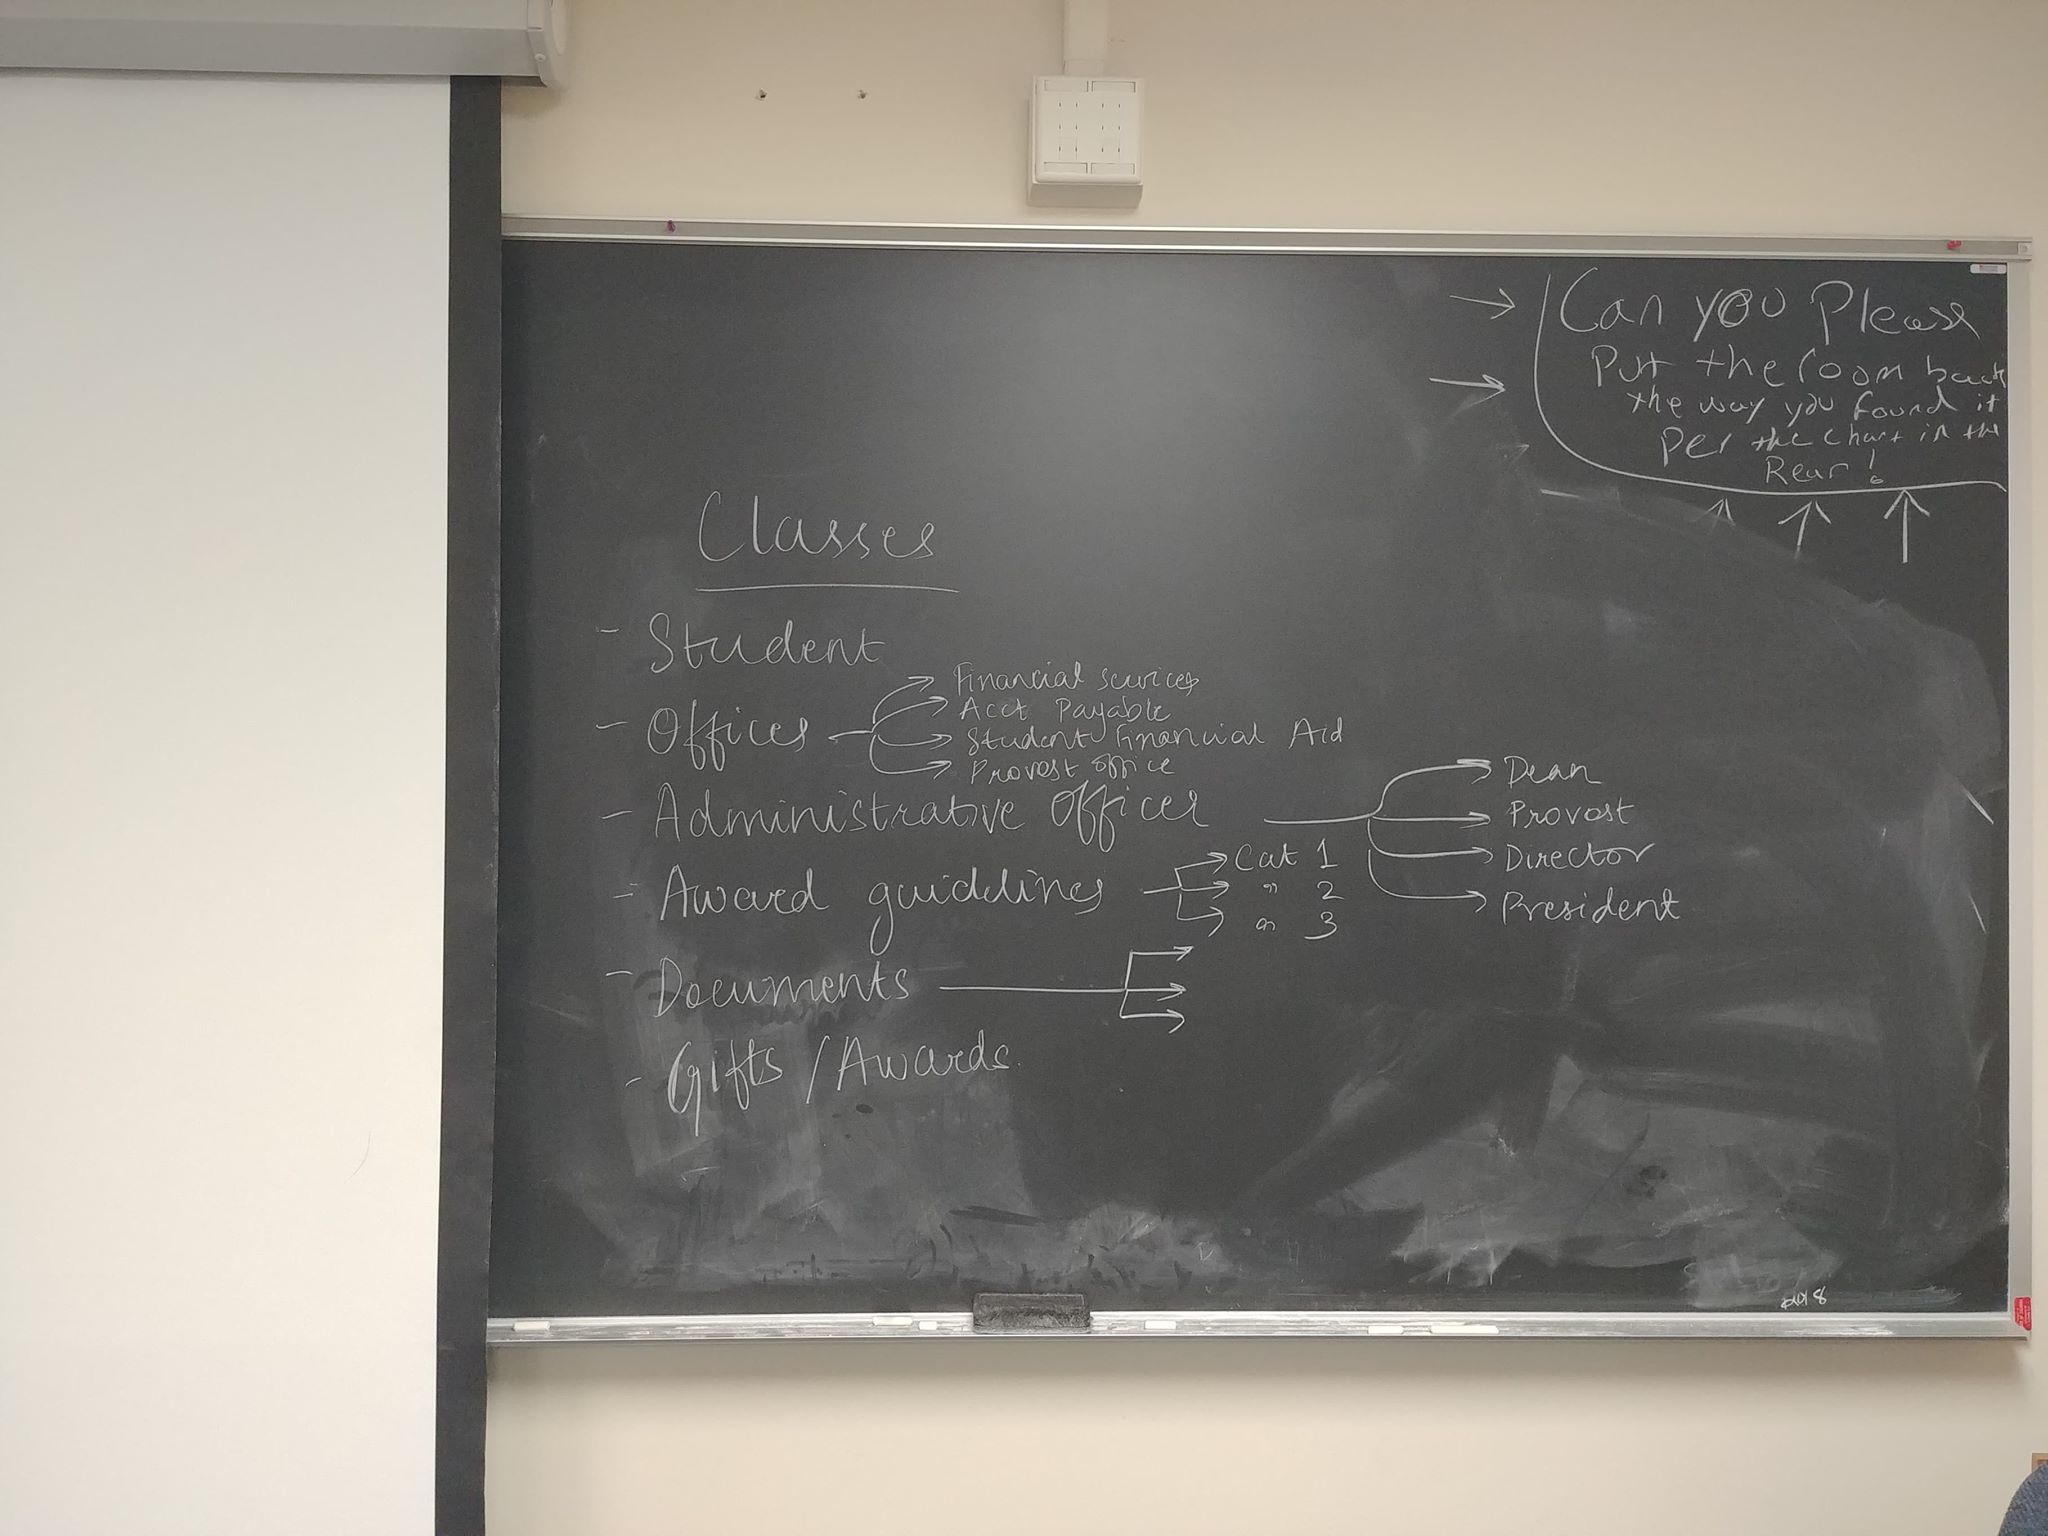 Can you Please
Put the room back
the way you found it
Per the chart in the
Rear!
Classes
- Student
- Offices
Financial services
Acct Payable
Student Financial Aid
Provost office
- Administrative Officer
Dean
Provost
Director
President
- Award guidelines
Cat 1
" 2
" 3
- Documents
- Gifts/Awards.